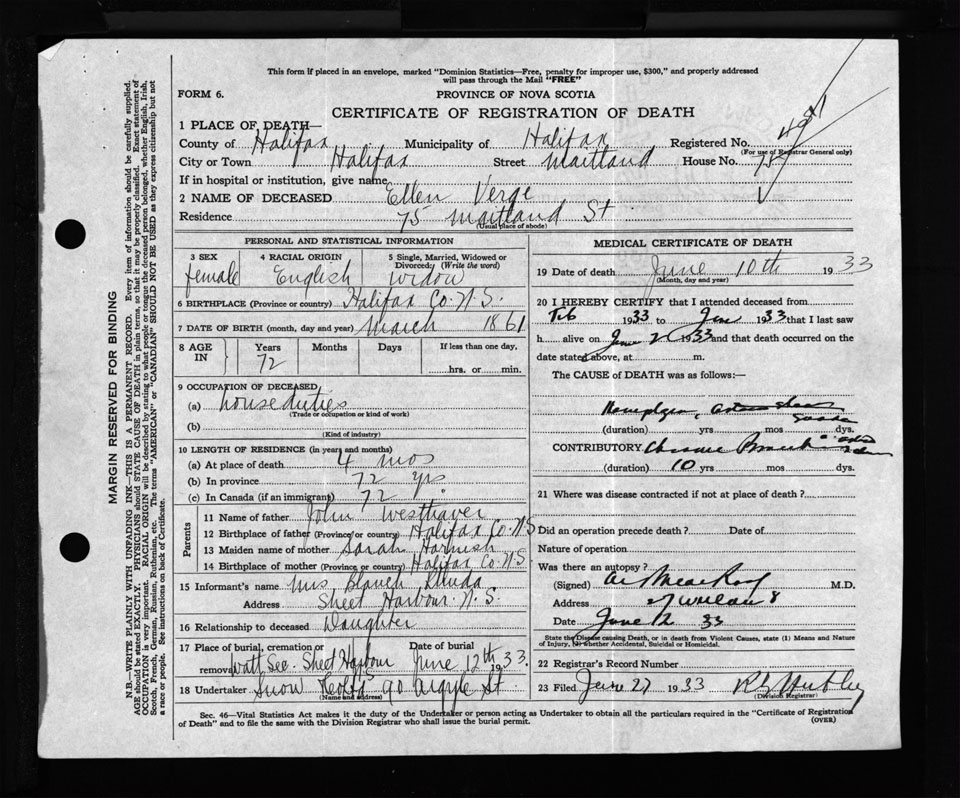 This form if placed in an envelope, marked "Dominion Statistics—Free, penalty for improper use, $300," and properly addressed
will pass through the Mail "FREE"
FORM 6.
PROVINCE OF NOVA SCOTIA
CERTIFICATE OF REGISTRATION OF DEATH
1 PLACE OF DEATH—
County of Halifax Municipality of Halifax Registered No.
(For use of Registrar General only)
City or Town Halifax Street Maitland House No. 75
If in hospital or institution, give name
2 NAME OF DECEASED Ellen Verge
Residence 75 Maitland St
(Usual place of abode)
PERSONAL AND STATISTICAL INFORMATION
3 SEX 4 RACIAL ORIGIN 5 Single, Married, Widowed or
Divorced, (Write the word)
female English widow
6 BIRTHPLACE (Province or country) Halifax Co. N.S.
7 DATE OF BIRTH (month, day and year) March 1861
8 AGE IN Years Months Days If less than one day,
72 hrs. or min.
9 OCCUPATION OF DECEASED
(a) house duties
(Trade or occupation or kind of work)
(b)
(Kind of industry)
10 LENGTH OF RESIDENCE (in years and months)
(a) At place of death 4 mos
(b) In province 72 yrs
(c) In Canada (if an immigrant) 72 "
Parents
11 Name of father John Westhaver
12 Birthplace of father (Province or country) Halifax Co. N S
13 Maiden name of mother Sarah Harnish
14 Birthplace of mother (Province or country) Halifax Co. N S
15 Informant's name Mrs Blanch
Address Sheet Harbour. N.S.
16 Relationship to deceased Daughter
17 Place of burial, cremation or Date of burial
removal Watt Sec. Sheet Harbour June 12th 1933.
18 Undertaker Snow 90 Argyle St
(Name and address)
MEDICAL CERTIFICATE OF DEATH
19 Date of death June 10th 1933
(Month, day and year)
20 I HEREBY CERTIFY that I attended deceased from
Feb 1933 to June 1933 that I last saw
h alive on June 1933 and that death occurred on the
date stated above, at m.
The CAUSE of DEATH was as follows:—
(duration) yrs mos dys.
CONTRIBUTORY Chronic
(duration) 10 yrs mos dys.
21 Where was disease contracted if not at place of death?
Did an operation precede death? Date of
Nature of operation
Was there an autopsy?
(Signed) M.D.
Address
Date June 12 33
State the Disease causing Death, or in death from Violent Causes, state (1) Means and Nature
of Injury, (2) whether Accidental, Suicidal or Homicidal.
22 Registrar's Record Number
23 Filed June 27 1933
(Division Registrar)
Sec. 46—Vital Statistics Act makes it the duty of the Undertaker or person acting as Undertaker to obtain all the particulars required in the "Certificate of Registration
of Death" and to file the same with the Division Registrar who shall issue the burial permit. (OVER)
MARGIN RESERVED FOR BINDING
N.B.—WRITE PLAINLY WITH UNFADING INK—THIS IS A PERMANENT RECORD. Every item of information should be carefully supplied.
AGE should be stated EXACTLY. PHYSICIANS should STATE CAUSE OF DEATH in plain terms, so that it may be properly classified. Exact statement of
OCCUPATION is very important. RACIAL ORIGIN will be described by stating to what people or tongue the deceased person belonged, whether English, Irish,
Scotch, French, German, Russian, Ruthenian, etc. The terms "AMERICAN" or "CANADIAN" SHOULD NOT BE USED as they express citizenship but not
a race or people. See instructions on back of Certificate.